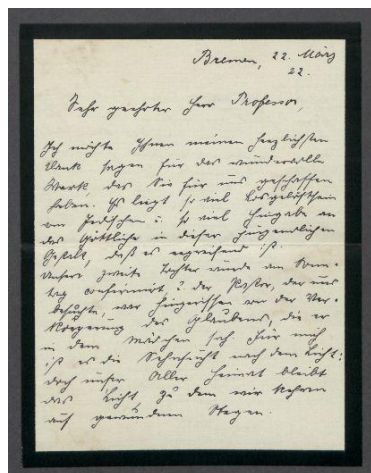 Bremen, 22. März
22.
Sehr geehrter Herr Professor,
Ich möchte Ihnen meinen herzlichsten
Dank sagen für das wundervolle
Werk das Sie für uns geschaffen
haben. Es liegt so viel Losgelöstsein
vom Irdischen u. so viel Hingabe an
das Göttliche in dieser
Gestalt, daß es ergreifend ist.
Unsere zweite Tochter wurde am Sonn-
tag confirmiert, u. der Pastor, der uns
besuchte, war hingerissen von der Ver-
körperung des Glaubens, die er
in dem Mädchen sah. Für mich
ist es die Sehnsucht nach dem Licht;
doch unser Aller Heimat bleibt
das Licht, zu dem wir kehren
auf gewundenen Stegen.